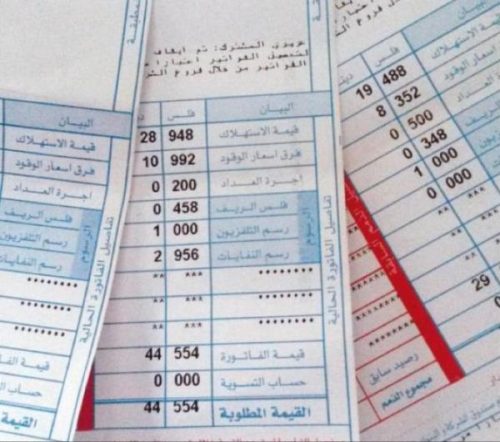 المطبقة
عزيزي المشترك: تم ايقاف
لتحصيل الفواتير اعتبارا
الفواتير من خلال فروع
البيان فلس
قيمة الاستهلاك 948 28
فرق اسعار الوقود 992 10
اجرة العداد 200 0
فلس الريف 458 0
رسم التلفزيون 000 1
رسم النفايات 956 2
الرسوم
*** **
********
*** **
********
قيمة الفاتورة 554 44
حساب التسوية 000 0
القيمة المطلوبة 554 44
تفاصيل الفاتورة الحالية
البيان
قيمة الاستهلاك
فرق اسعار الوقود
اجرة العداد
فلس الريف
رسم التلفزيون
رسم النفايات
الرسوم
********
********
قيمة
حساب
القيمة
تفاصيل الفاتورة الحالية
فلس
قيمة الاستهلاك 488 19
فرق اسعار الوقود 352 8
العداد 500 0
348 0
000 1
000 0
29
رصيد سابق
مجموع الذمم